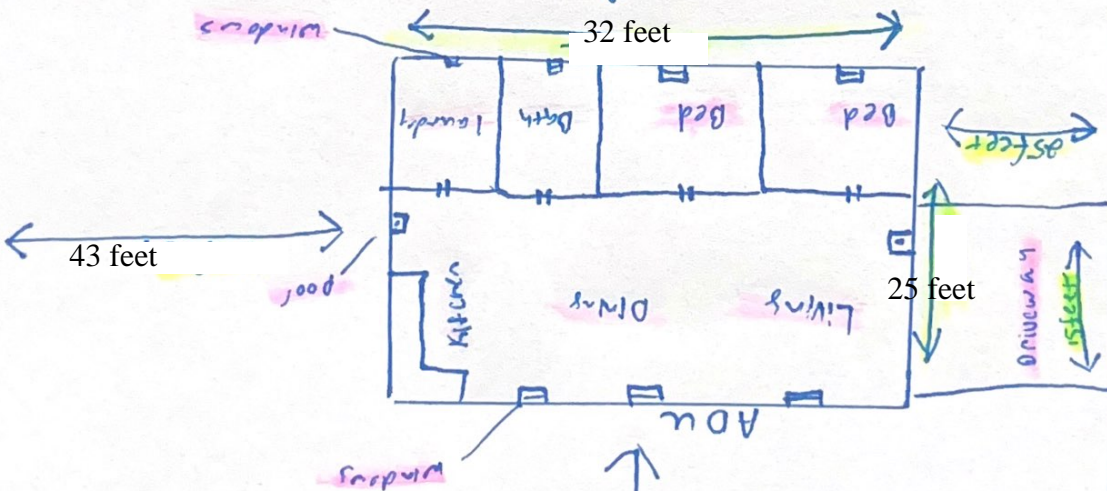 windows
32 feet
Laundry
Bath
Bed
Bed
25feet
43 feet
door
Kitchen
Dining
Living
25 feet
Driveway
15feet
ADU
windows